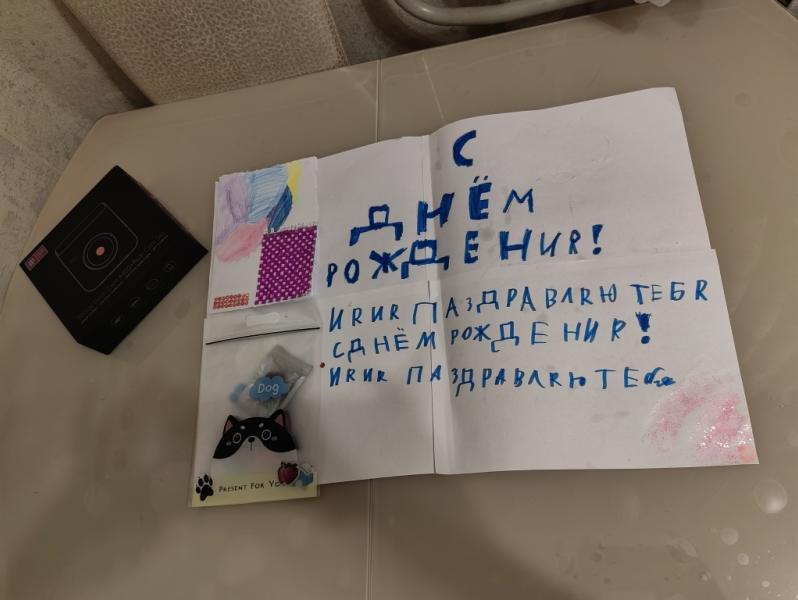 С
ДНЁМ
РОЖДЕНИЯ!
ИЯИЯ ПАЗДРАВЛЯЮ ТЕБЯ
СДНЁМ РОЖДЕНИЯ!
ИЯИЯ ПАЗДРАВЛЯЮ ТЕбя
Dog
PRESENT FOR